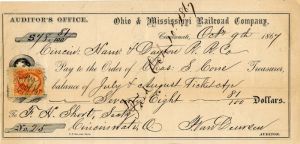 AUDITOR'S OFFICE.
Ohio & Mississippi Railroad Company,
$78 51/100
Cincinnati, Oct 9th 1867
Cincin. Ham. & Dayton R. R. Co.
Pay to the Order of Treasurer,
balance of July & August Ticket
Seventy Eight 51/100 Dollars.
To F. H. Short,
Cincinnati, O
AUDITOR.